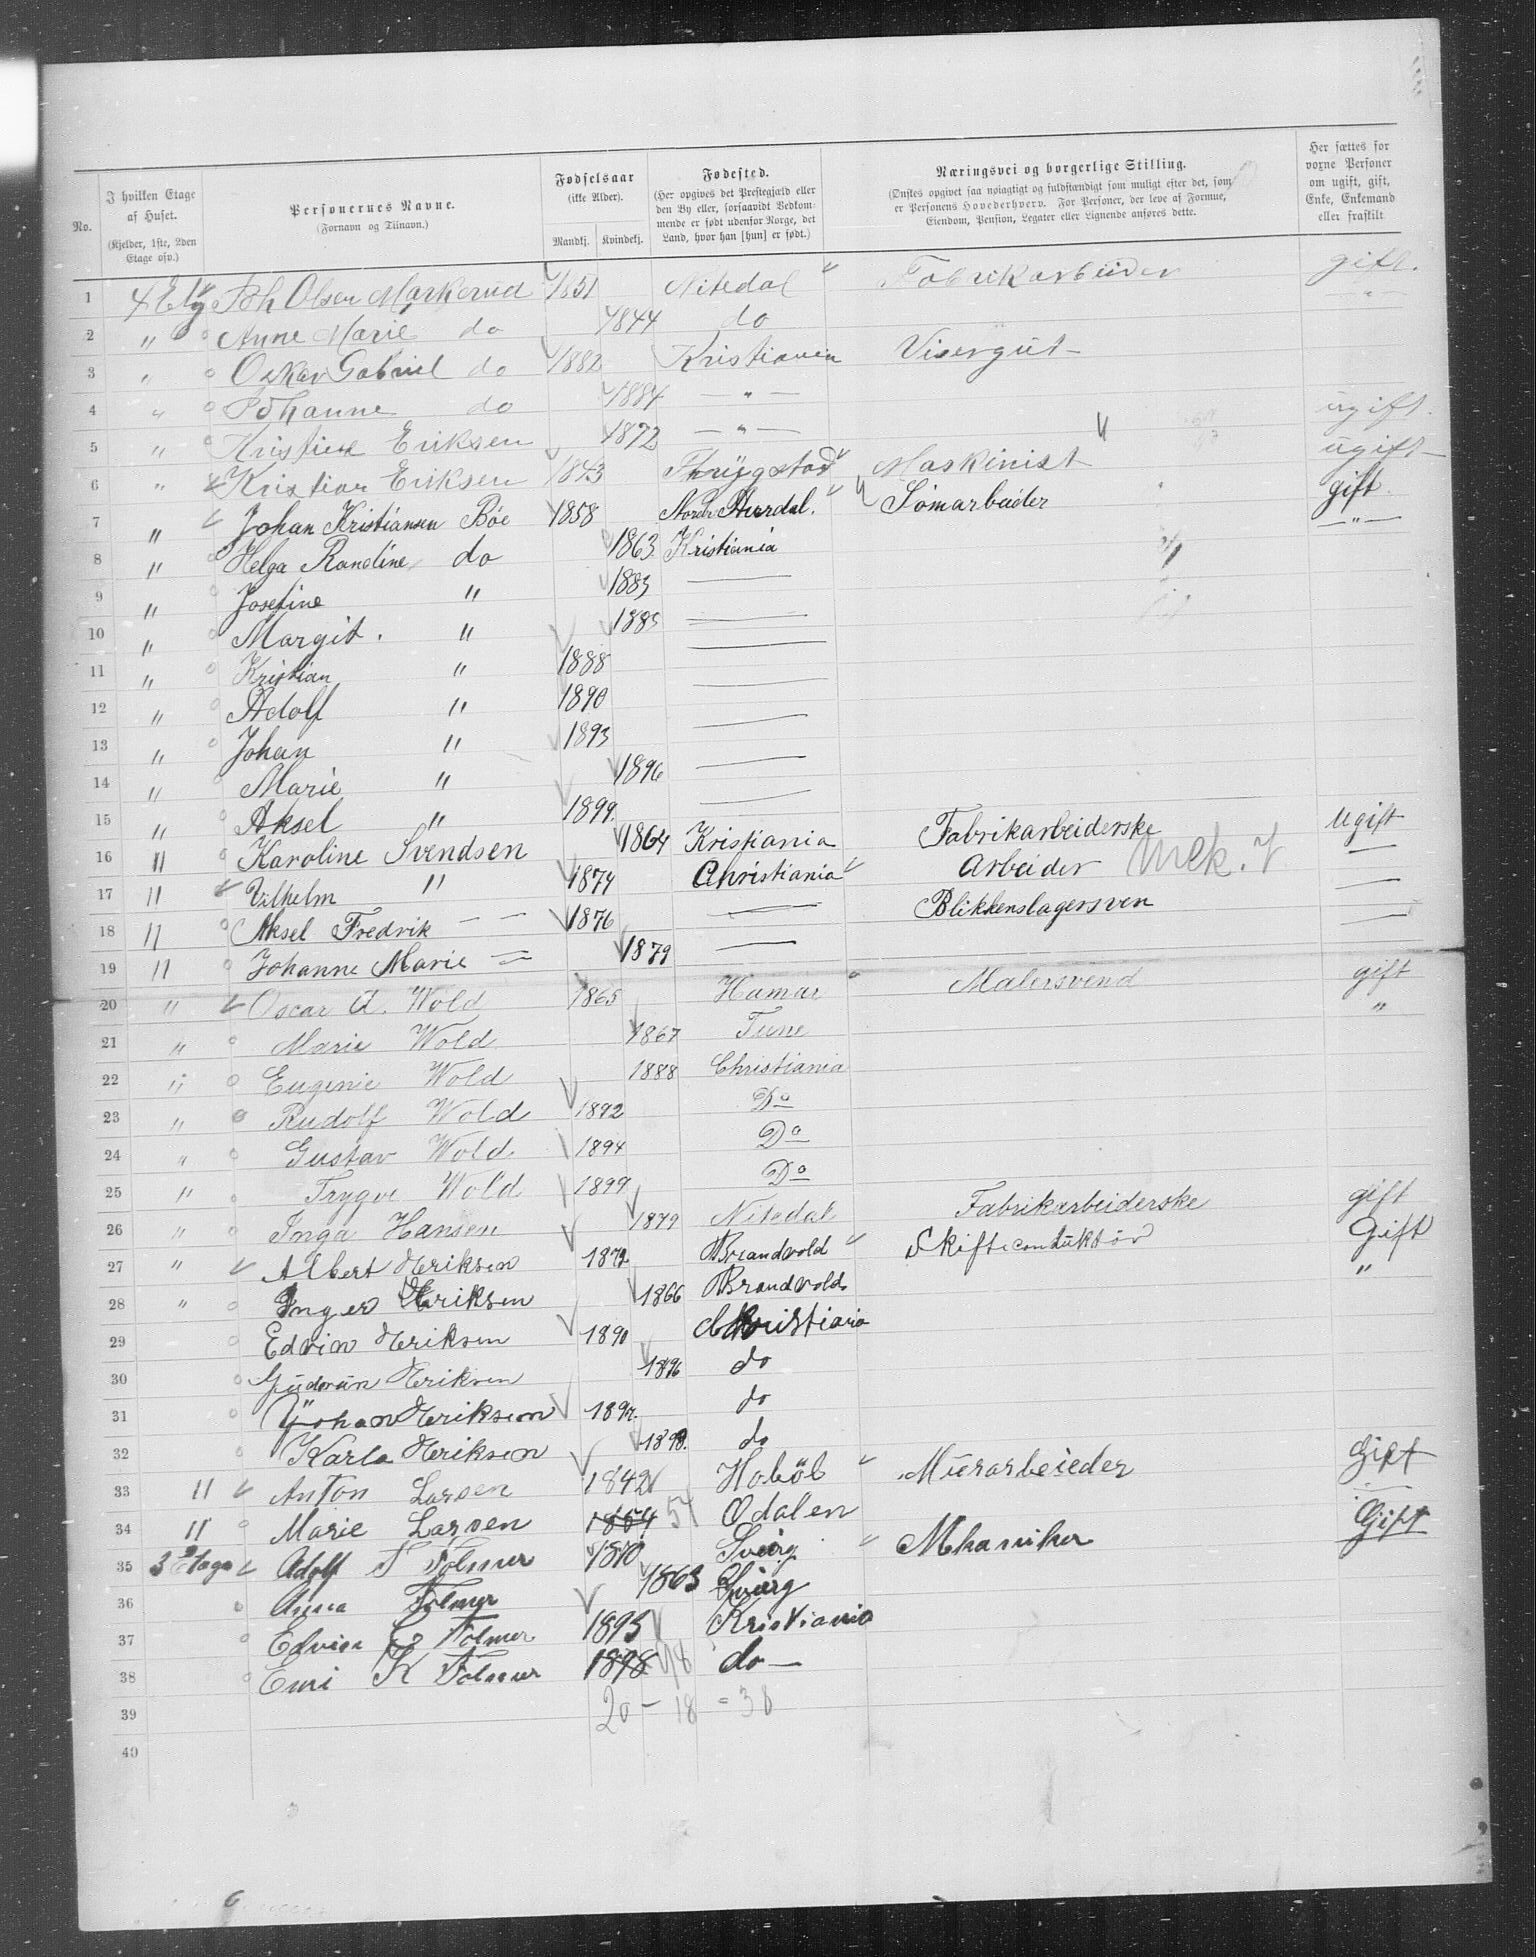 No.
I hvilken Etage af Huset. (Kjelder, 1ste, 2den Etage osv.)
Personernes Navne. (Fornavn og Tilnavn.)
Fødselsaar (ikke Alder). Mandkj. Kvindekj.
Fødested. (Her opgives det Prestegjæld eller den By eller, forsaavidt Vedkommende er født udenfor Norge, det Land, hvor han [hun] er født.)
Næringsvei og borgerlige Stilling. (Ønskes opgivet saa nøiagtigt og fuldstændigt som muligt efter det, som er Personens Hovederhverv. For Personer, der leve af Formue, Eiendom, Pension, Legater eller Lignende anføres dette.
Her sættes for voxne Personer om ugift, gift, Enke, Enkemand eller fraskilt
1 4 Etg Joh Olsen Markerud 1851 Nitedal " Fabrikarbeider gift.
2 " Anne Marie do 1844 do — " —
3 " Oskar Gabriel do 1882 Kristiania Visergut
4 " Johanne do 1884 — " —
5 " Kristine Eriksen 1872 — " — ugift.
6 " Kristian Eriksen 1843 Thrygstad " Maskinist ugift
7 " Johan Kristiansen Böe 1858 Nordre Hurdal. " Tömarbeider gift.
8 " Helga Randine do 1863 Kristiania — " —
9 " Josefine " 1883 —
10 " Margit. " 1885 —
11 " Kristian " 1888 —
12 " Adolf " 1890 —
13 " Johan " 1893 —
14 " Marie " 1896 —
15 " Aksel " 1899. —
16 " Karoline Svendsen 1864 Kristiania Fabrikarbeiderske Ugift
17 " Vilhelm " 1874 Christiania " Arbeider Mek. V —
18 " Aksel Fredrik — — 1876 — Blikkenslagersven —
19 " Johanne Marie — 1879 — —
20 " Oscar A. Wold 1865 Hamar " Malersvend gift
21 " Marie Wold 1867 Tune "
22 " Eugenie Wold 1888 Christiania
23 " Rudolf Wold 1892 Do
24 " Gustav Wold 1894 Do
25 " Trygve Wold 1899 Do
26 " Inga Hansen 1879 Nitedal Fabrikarbeiderske gift
27 " Albert Heriksen 1872 Brandvold " Skifteconduktör Gift
28 " Inger Heriksen 1866 Brandvold "
29 Edvin Heriksen 1890 Christiania
30 Gudrun Heriksen 1896 do
31 Johan Heriksen 1897. do
32 Karla Heriksen 1898. do
33 " Anton Larsen 1842 Haböl " Murarbeieder Gift
34 " Marie Larsen 1854 54 Odalen
35 3 Etage Adolf S Folmer 1870 Sverig " Mkaniker Gift
36 Anna Folmer 1863 Sverig
37 Edvin G Folmer 1895 Kristiania
38 Emi K Folmer 1898 98 do —
39 20 — 18 = 38
40